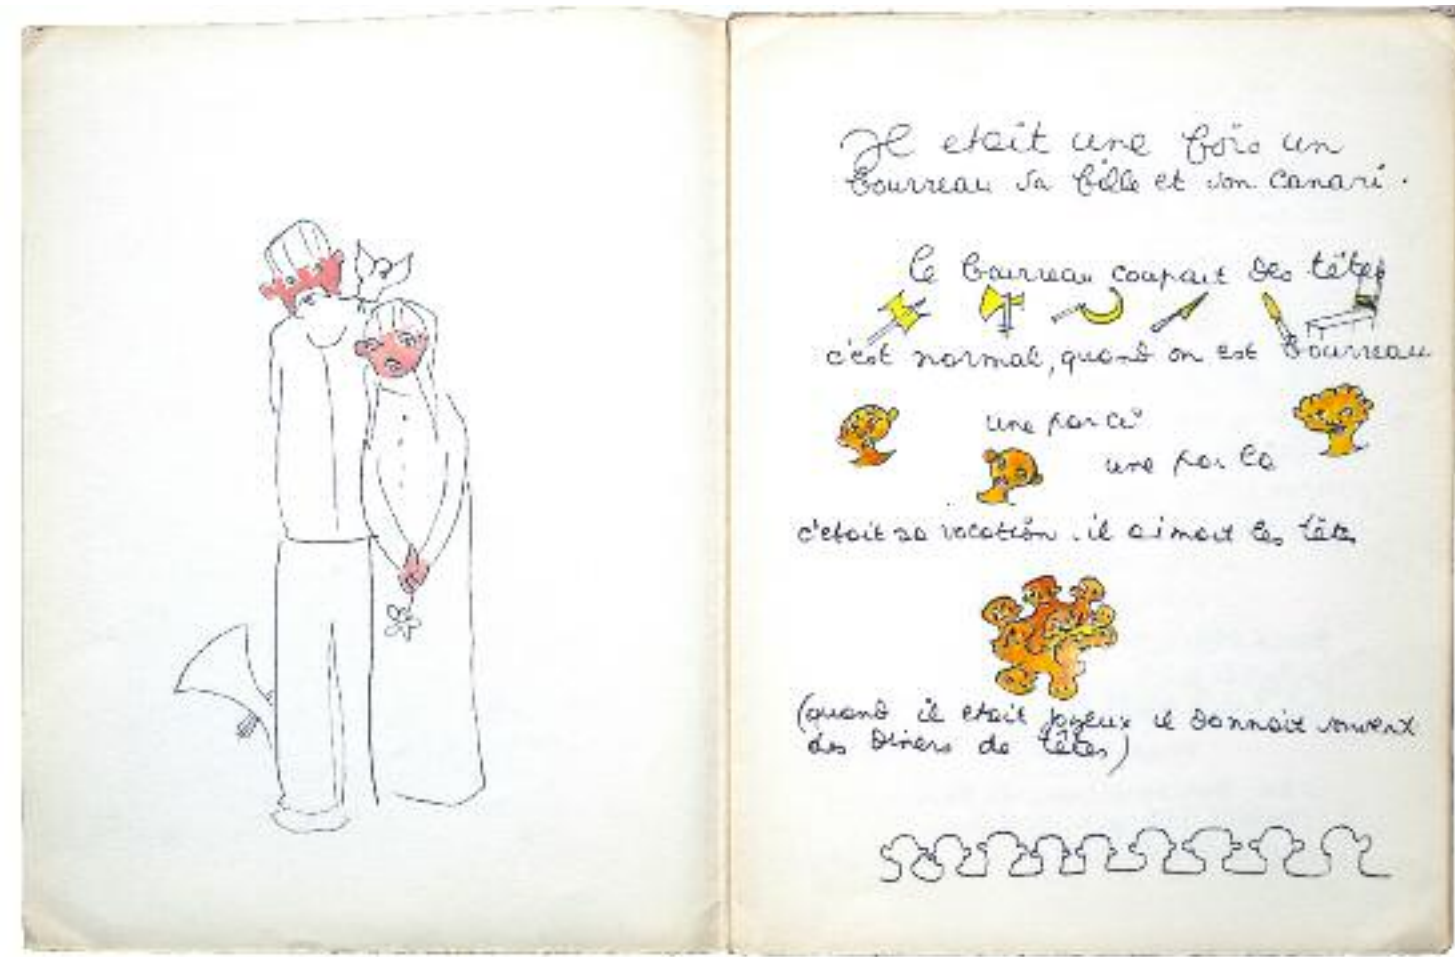 Il etait une fois un
bourreau sa fille et son canari.
le bourreau coupait des têtes
c'est normal, quand on est bourreau
une par ci
une par la
c'etait sa vocation. il aimait les têtes
(quand il etait joyeux il donnait souvent
des diners de têtes)